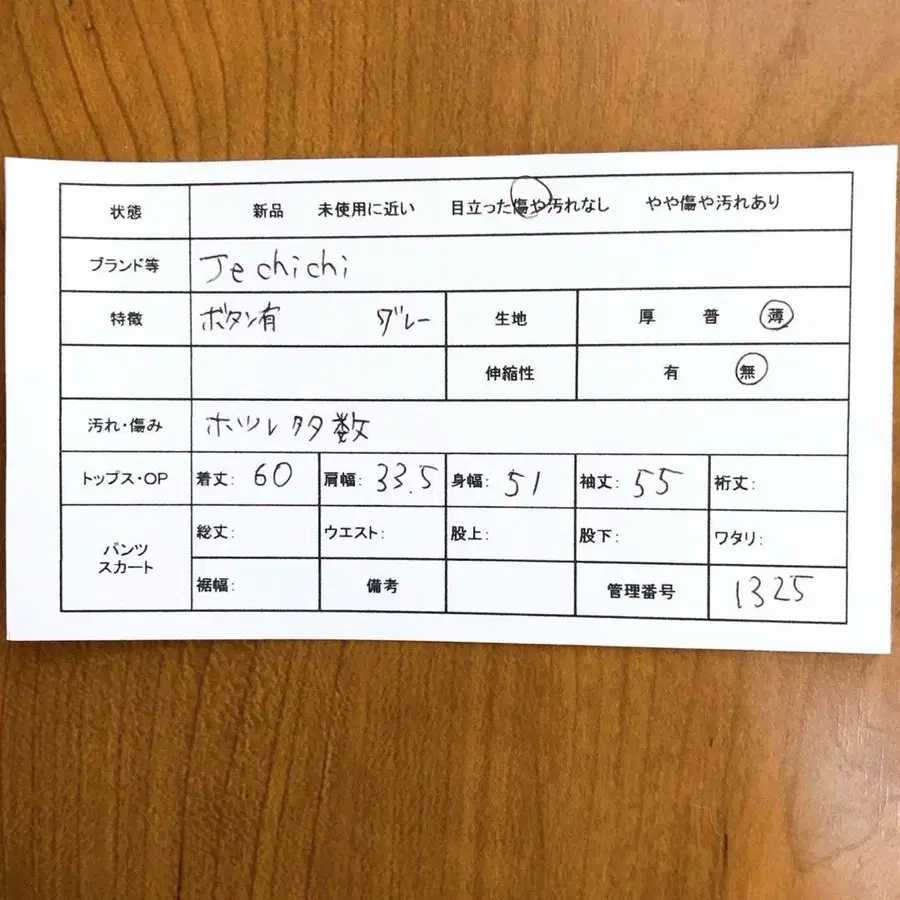 状態 新品 未使用に近い 目立った傷や汚れなし やや傷や汚れあり
ブランド等 Te chichi
特徴 ボタン有 グレー 生地 厚 普 薄
伸縮性 有 無
汚れ・傷み ホツレ多数
トップス・OP 着丈: 60 肩幅: 33.5 身幅: 51 袖丈: 55 裄丈:
パンツ
スカート
総丈: ウエスト: 股上: 股下: ワタリ:
裾幅: 備考 管理番号 1325